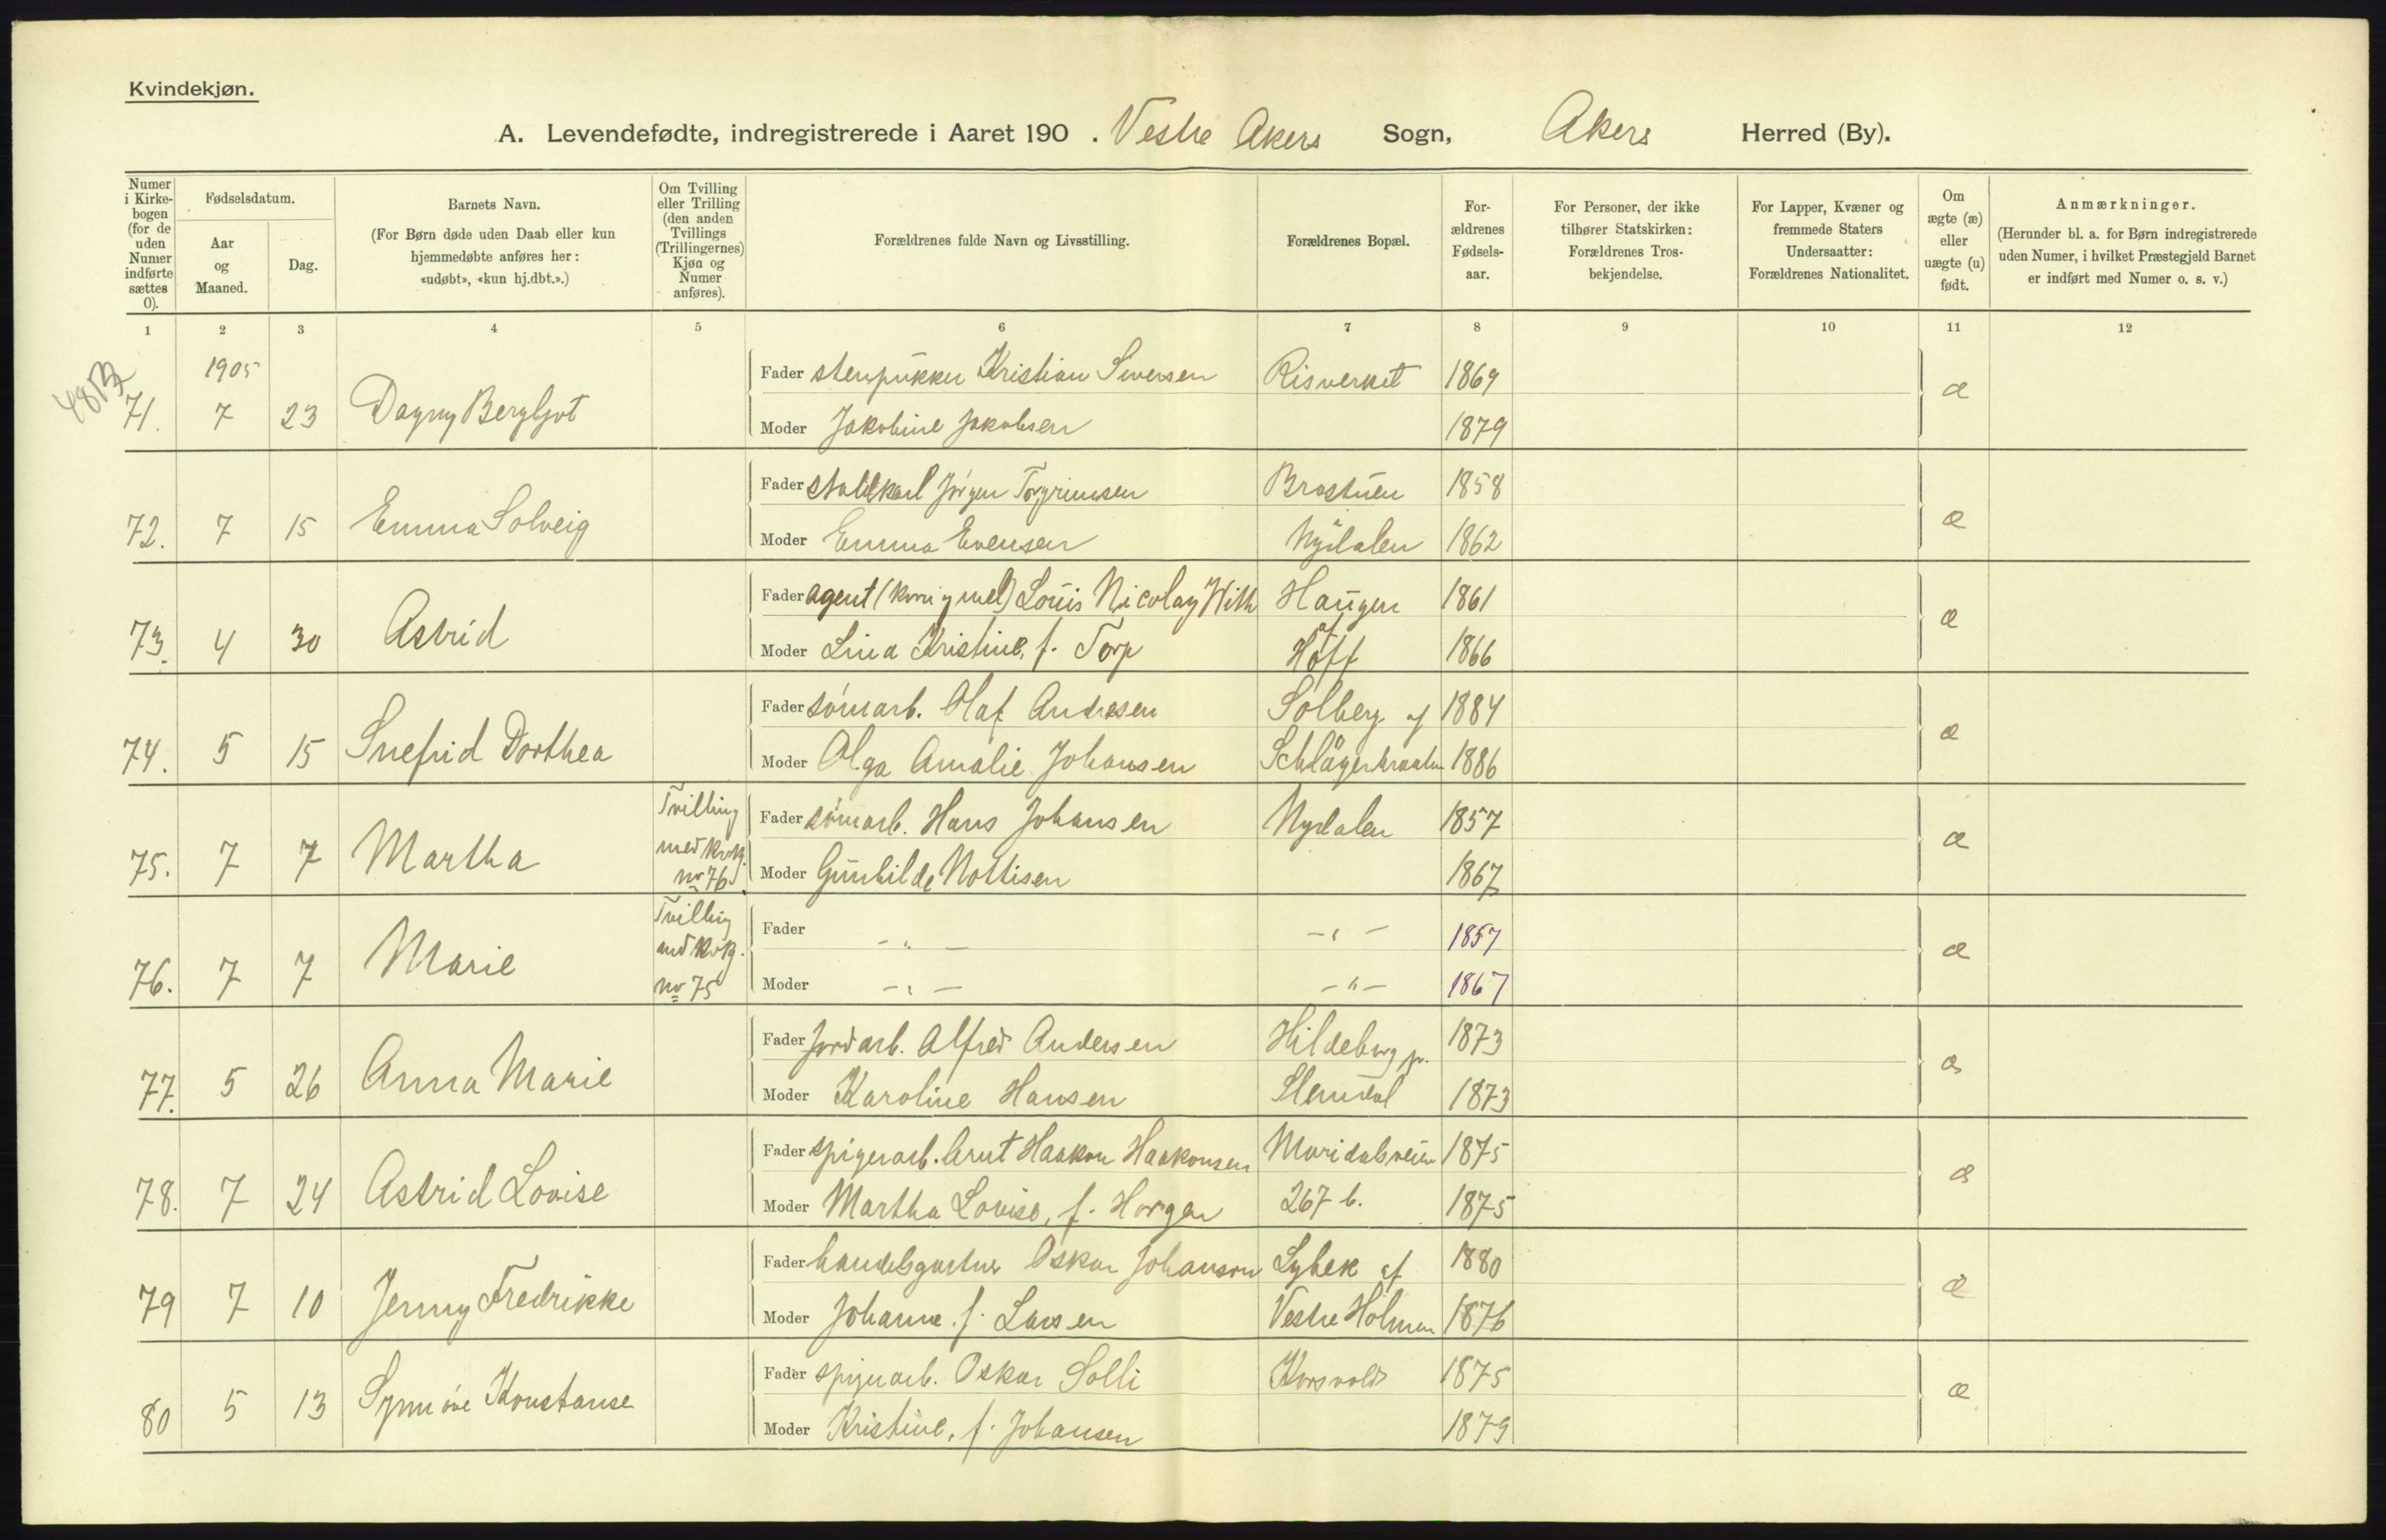 Kvindekjøn.
A. Levendefødte, indregistrerede i Aaret 190 . Vestre Akers Sogn, Akers Herred (By).
Numer i Kirkebogen (for de uden Numer indførte sættes 0).
Fødselsdatum.
Aar og Maaned.
Dag.
Barnets Navn.
(For Børn døde uden Daab eller kun hjemmedøbte anføres her: «udøbt», «kun hj.dbt.».)
Om Tvilling eller Trilling (den anden Tvillings (Trillingernes) Kjøn og Numer anføres).
Forældrenes fulde Navn og Livsstilling.
Forældrenes Bopæl.
Forældrenes Fødselsaar.
For Personer, der ikke tilhører Statskirken: Forældrenes Trosbekjendelse.
For Lapper, Kvæner og fremmede Staters Undersaatter: Forældrenes Nationalitet.
Om ægte (æ) eller uægte (u) født.
Anmærkninger.
(Herunder bl. a. for Børn indregistrerede uden Numer, i hvilket Præstegjeld Barnet er indført med Numer o. s. v.)
1 2 3 4 5 6 7 8 9 10 11 12
1905
Fader stenpukker Kristian Siversen Risverket 1869
71. 7 23 Dagny Bergljot æ
Moder Jakobine Jakobsen 1879
Fader staldkarl Jörgen Torgrimsen Brostuen 1858
72. 7 15 Emma Solveig æ
Moder Emma Evensen Nydalen 1862
Fader agent (korn y mel) Louis Nicolay With Haugen 1861
73. 4 30 Astrid æ
Moder Lina Kristine, f. Torp Hoff 1866
Fader sömarb. Olaf Andresen Solberg af 1884
74. 5 15 Snefrid Dorthea æ
Moder Olga Amalie Johansen 1886
Tvilling med kvkj. no 76
Fader sömarb. Hans Johansen Nydalen 1857
75. 7 7 Martha æ
Moder Gunhilde Nottisen 1867
Tvilling med kvkj. no 75
Fader - " - - " - 1857
76. 7 7 Marie æ
Moder - " - - " - 1867
Fader jordarb. Alfred Andersen Hildeborg p. 1873
77. 5 26 Anna Marie æ
Moder Karoline Hansen 1873
Fader spigerarb. Arnt Haakon Haakonsen Maridalsveien 1875
78. 7 24 Astrid Lovise æ
Moder Martha Lovise, f. Horgen 267 b. 1875
Fader handelsgartner Oskar Johanson Lybek af 1880
79 7 10 Jenny Fredrikke æ
Moder Johanne f. Larsen Vestre Holmen 1876
Fader spigerarb. Oskar Solli Korsvold 1875
80 5 13 Synnöve Konstanse æ
Moder Kristine, f. Johansen 1879